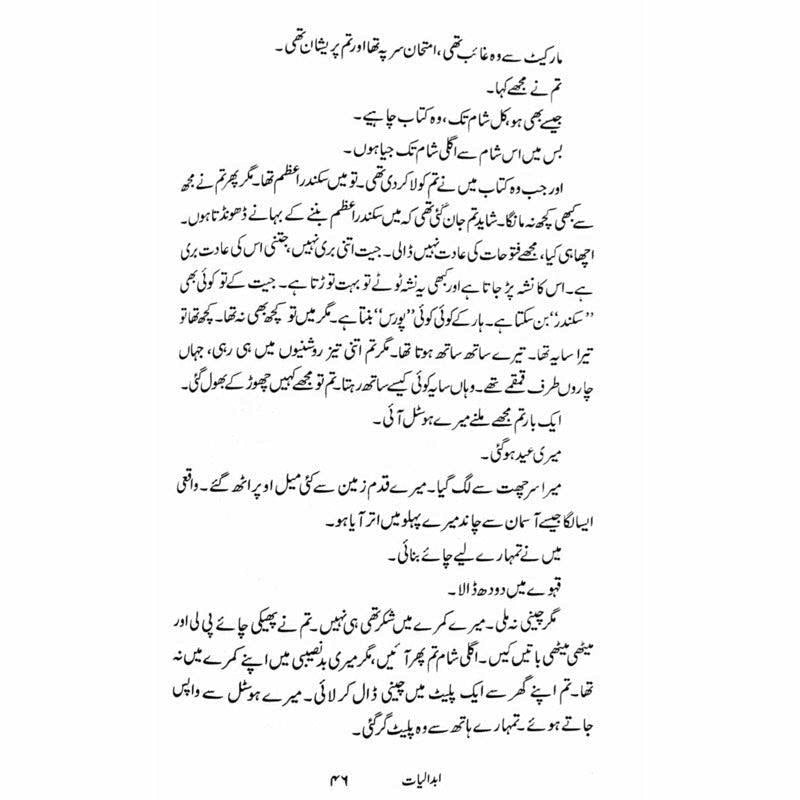 مارکیٹ سے وہ غائب تھی، امتحان سر پہ تھا اور تم پریشان تھی۔
تم نے مجھے کہا۔
جیسے بھی ہو، کل شام تک، وہ کتاب چاہیے۔
بس میں اس شام سے اگلی شام تک جیا ہوں۔
اور جب وہ کتاب میں نے تم کو لا کر دی تھی۔ تو میں سکندر اعظم تھا۔ مگر پھر تم نے مجھ
سے کبھی کچھ نہ مانگا۔ شاید تم جان گئی تھی کہ میں سکندر اعظم بننے کے بہانے ڈھونڈتا ہوں۔
اچھا ہی کیا، مجھے فتوحات کی عادت نہیں ڈالی۔ جیت اتنی بری نہیں، جتنی اس کی عادت بری
ہے۔ اس کا نشہ پڑ جاتا ہے اور کبھی یہ نشہ ٹوٹے تو بہت توڑتا ہے۔ جیت کے تو کوئی بھی
’’سکندر‘‘ بن سکتا ہے۔ ہار کے کوئی کوئی ’’پورس‘‘ بنتا ہے۔ مگر میں تو کچھ بھی نہ تھا۔ کچھ تھا تو
تیرا سایہ تھا۔ تیرے ساتھ ساتھ ہوتا تھا۔ مگر تم اتنی تیز روشنیوں میں ہی رہی، جہاں
چاروں طرف قمقمے تھے۔ وہاں سایہ کوئی کیسے ساتھ رہتا۔ تم تو مجھے کہیں چھوڑ کے بھول گئی۔
ایک بار تم مجھے ملنے میرے ہوسٹل آئی۔
میری عید ہو گئی۔
میرا سر چھت سے لگ گیا۔ میرے قدم زمین سے کئی میل اوپر اٹھ گئے۔ واقعی
ایسا لگا جیسے آسمان سے چاند میرے پہلو میں اتر آیا ہو۔
میں نے تمہارے لیے چائے بنائی۔
قہوے میں دودھ ڈالا۔
مگر چینی نہ ملی۔ میرے کمرے میں شکر تھی ہی نہیں۔ تم نے پھیکی چائے پی لی اور
میٹھی میٹھی باتیں کیں۔ اگلی شام تم پھر آئیں، مگر میری بدنصیبی میں اپنے کمرے میں نہ
تھا۔ تم اپنے گھر سے ایک پلیٹ میں چینی ڈال کر لائی۔ میرے ہوسٹل سے واپس
جاتے ہوئے۔ تمہارے ہاتھ سے وہ پلیٹ گر گئی۔
ابدالیات ۴۶